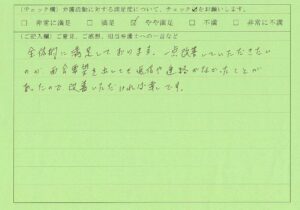 (チェック欄) 弁護活動に対する満足度について、チェック☑をお願いします。
□ 非常に満足 □ 満足 ☑ やや満足 □ 不満 □ 非常に不満
(ご記入欄) ご意見、ご感想、担当弁護士への一言など
全体的に満足しております。一点改善していただきたい
のが面会要望を出しても返信や連絡がなかったことが
あったので改善いただければ幸いです。